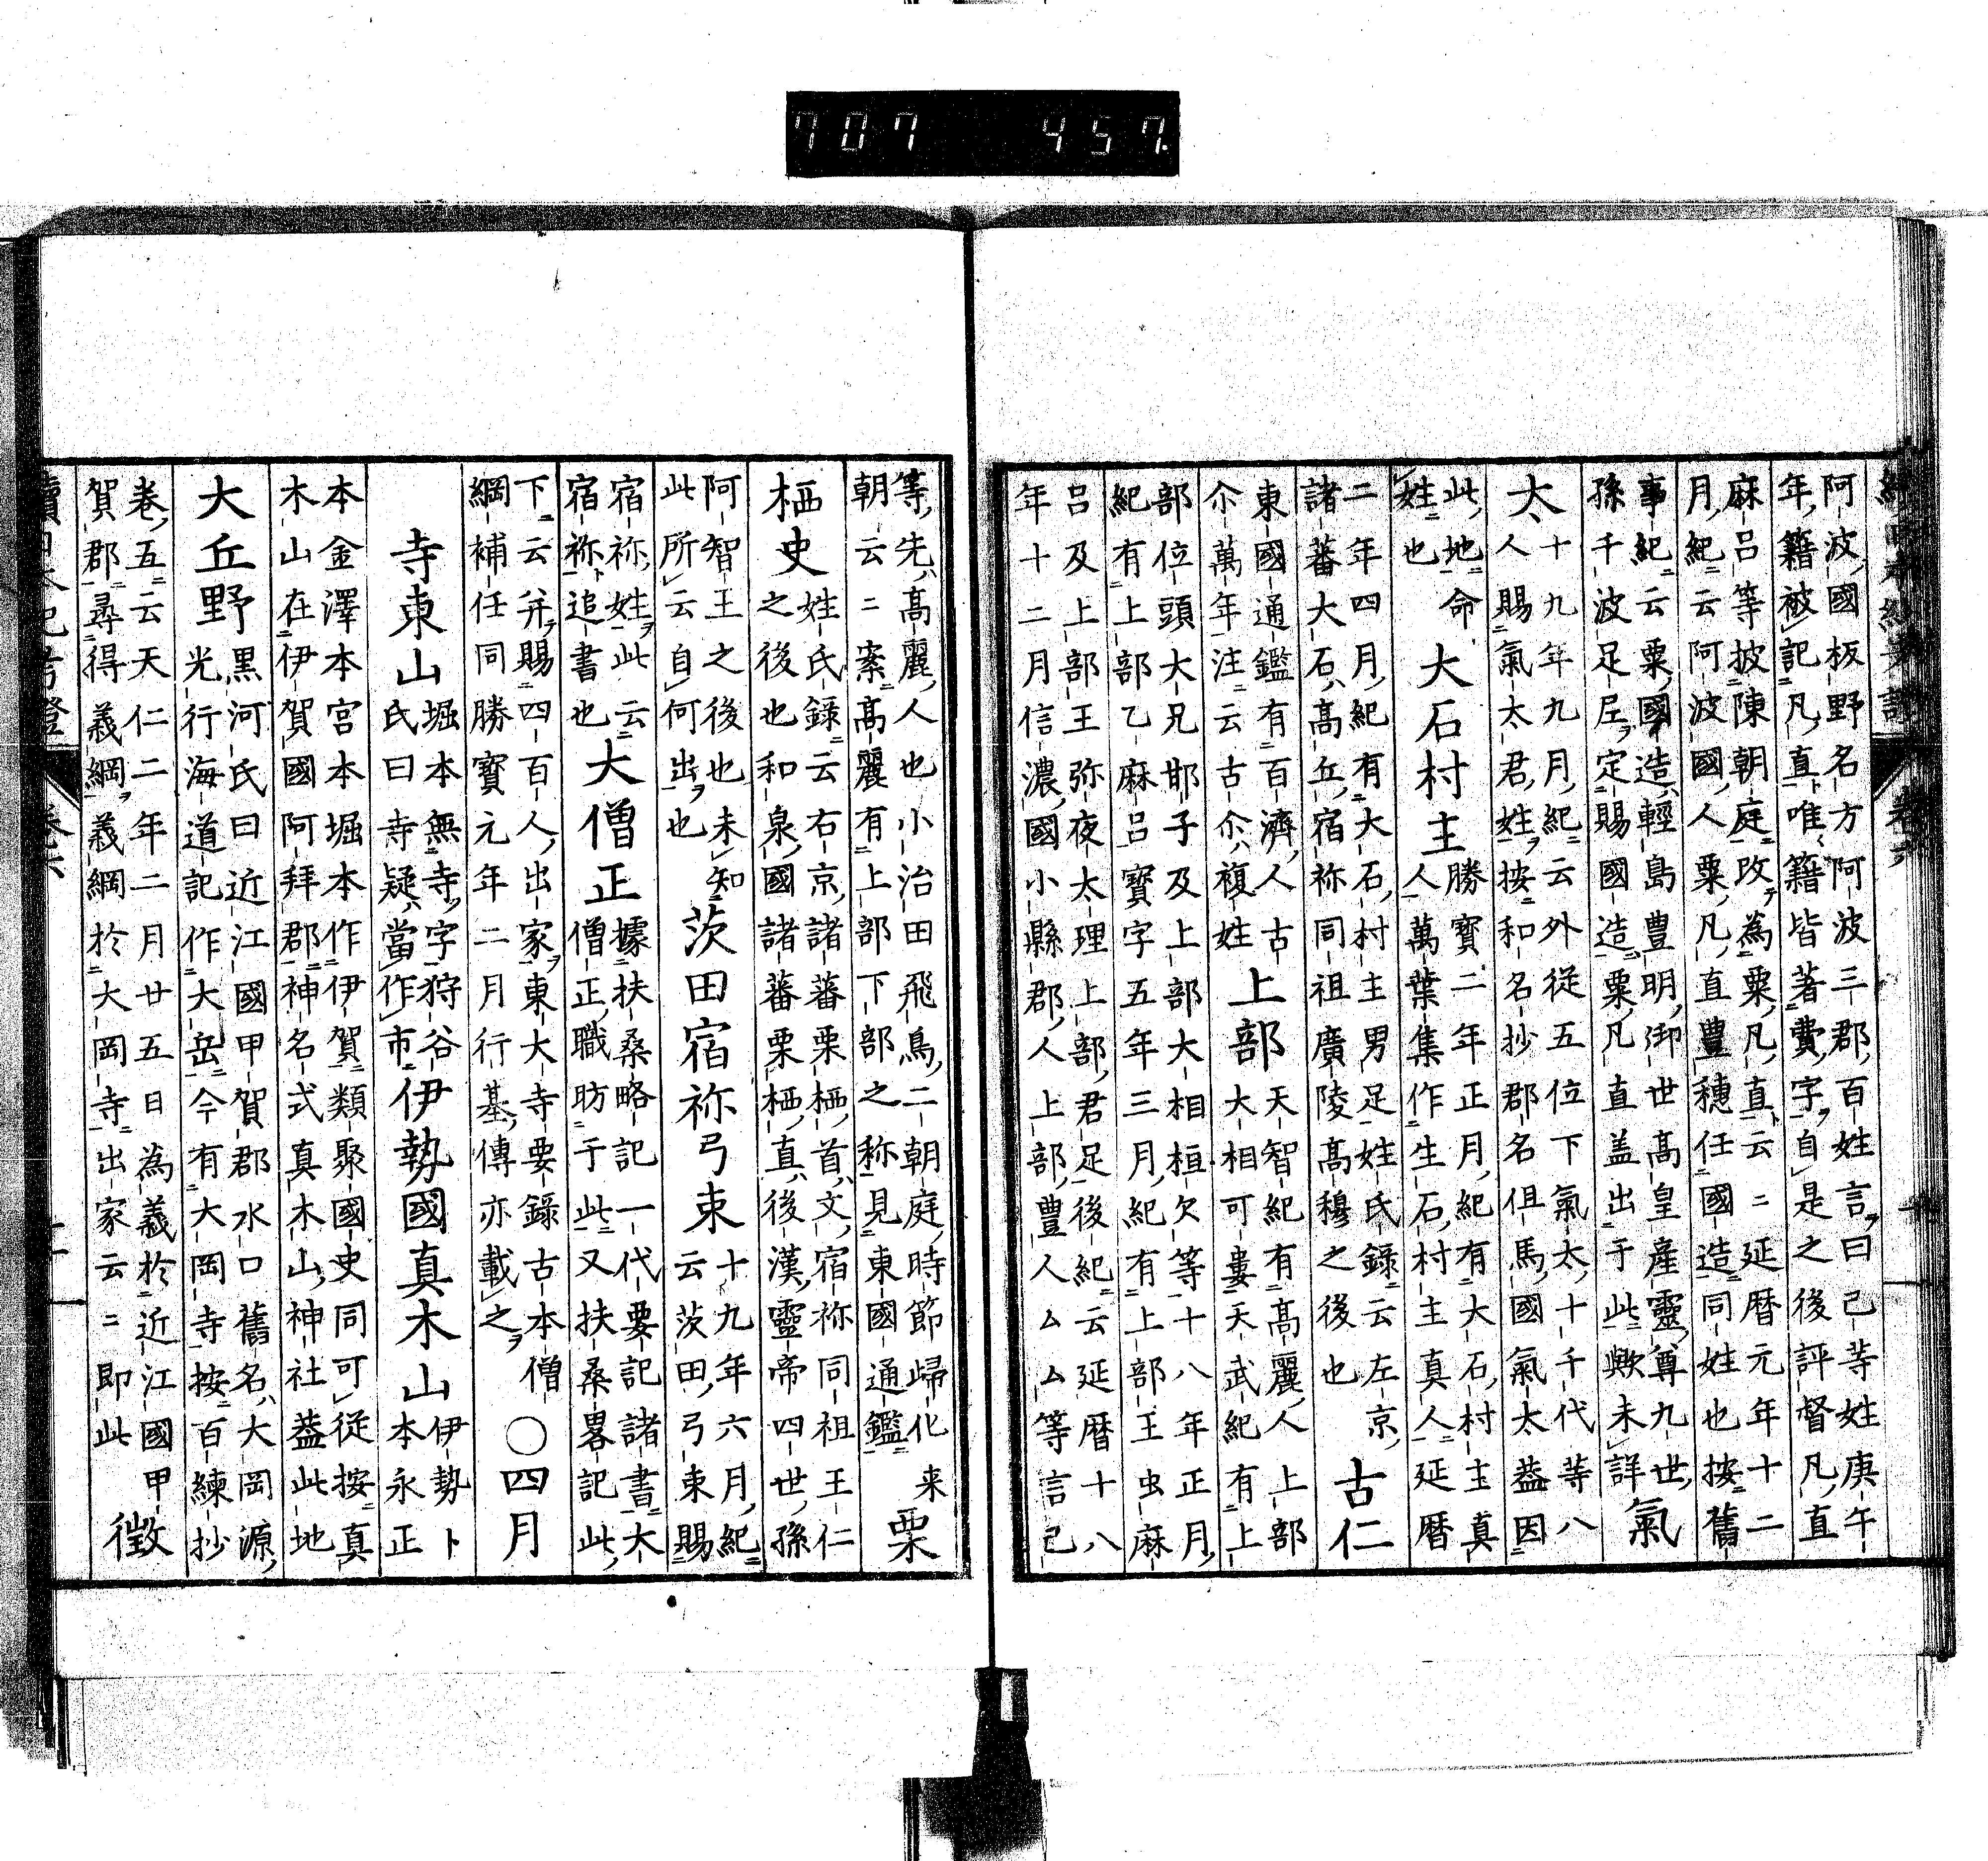 707 457.
阿波國板野名方阿波三郡百姓言曰己等姓庚午
年籍被記凡直唯籍皆著費字自是之後評督凡直
麻呂等披陳朝庭改為粟凡直云〻延曆元年十二
月紀云阿波國人粟凡直豊穗任國造同姓也按舊
事紀云粟國造輕島豊明御世高皇産靈尊九世
孫千波足尼定賜國造粟凡直盖出于此歟未詳
氣太
十九年九月紀云外從五位下氣太十千代等八
人賜氣太君姓按和名抄郡名但馬國氣太葢因
此地命
姓也
大石村主
勝寳二年正月紀有大石村主真
人萬葉集作生石村主真人延曆
二年四月紀有大石村主男足姓氏錄云左京
諸蕃大石髙丘宿祢同祖廣陵髙穆之後也
古仁
東國通鑑有百濟人古
尒萬年注云古尒複姓
上部
天智紀有髙麗人上部
大相可婁天武紀有上
部位頭大兄邯子及上部大相桓欠等十八年正月
紀有上部乙麻呂寳字五年三月紀有上部王虫麻
呂及上部王弥夜太理上部君足後紀云延曆十八
年十二月信濃國小縣郡人上部豊人ムム等言己
等先髙麗人也小治田飛鳥二朝庭時節歸化来
朝云〻案髙麗有上部下部之称見東國通鑑
栗栖史
姓氏録云右京諸蕃栗栖首文宿祢同祖王仁
之後也和泉國諸蕃栗栖直後漢靈帝四世孫
阿智王之後也未知
此所云自何出也
茨田宿祢弓束
十九年六月紀
云茨田弓束賜
宿祢姓此云
宿祢追書也
大僧正
據扶桑略記一代要記諸書大
僧正職昉于此又扶桑畧記此
下云并賜四百人出家東大寺要録古本僧
綱補任同勝寳元年二月行基傳亦載之
○四月
寺東山
堀本無寺字狩谷
氏曰寺疑當作市
伊勢國真木山
伊勢卜
本永正
本金澤本宮本堀本作伊賀類聚國史同可從按真
木山在伊賀國阿拜郡神名式真木山神社葢此地
大丘野
黒河氏曰近江國甲賀郡水口舊名大岡源
光行海道記作大岳今有大岡寺按百練抄
卷五云天仁二年二月廿五日為義於近江國甲
賀郡尋得義綱義綱於大岡寺出家云〻即此
徵